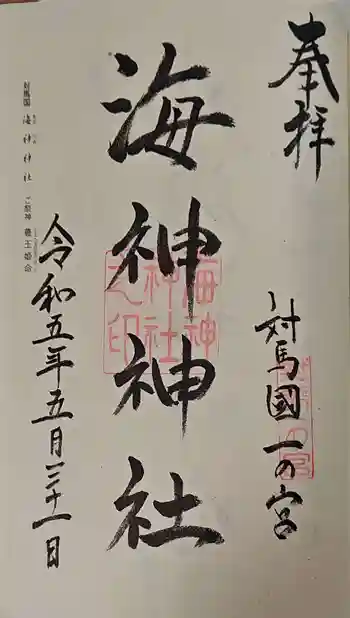 奉拝
対馬國一の宮
海神神社
海神神社之印
令和五年五月三十一日
対馬国 海神神社 ご祭神 豊玉姫命